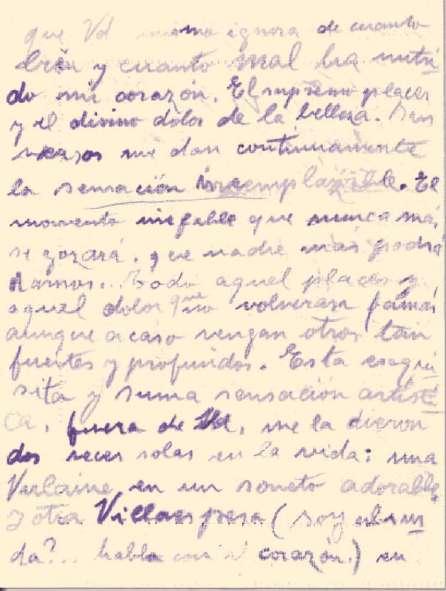 que Vd mismo ignora de cuanto
bien y cuanto mal ha nutri
do mi corazon. El supremo placer
y el divino dolor de la belleza. Sus
versos me dan continuamente
la sensación irreemplazable. El
momento inefable que nunca más
se gozará, que nadie más podrá
darnos... Todo aquel placer y
aquel dolor que no volveran jamás
aunque acaso vengan otros tan
fuertes y profundos. Esta exqui
sita y suma sensación artísti
ca, fuera de Vd, me la dieron
dos veces solas en la vida: una
Verlaine en un soneto adorable
y otra Villaespesa (soy absur
da?... habla con el corazon.) en